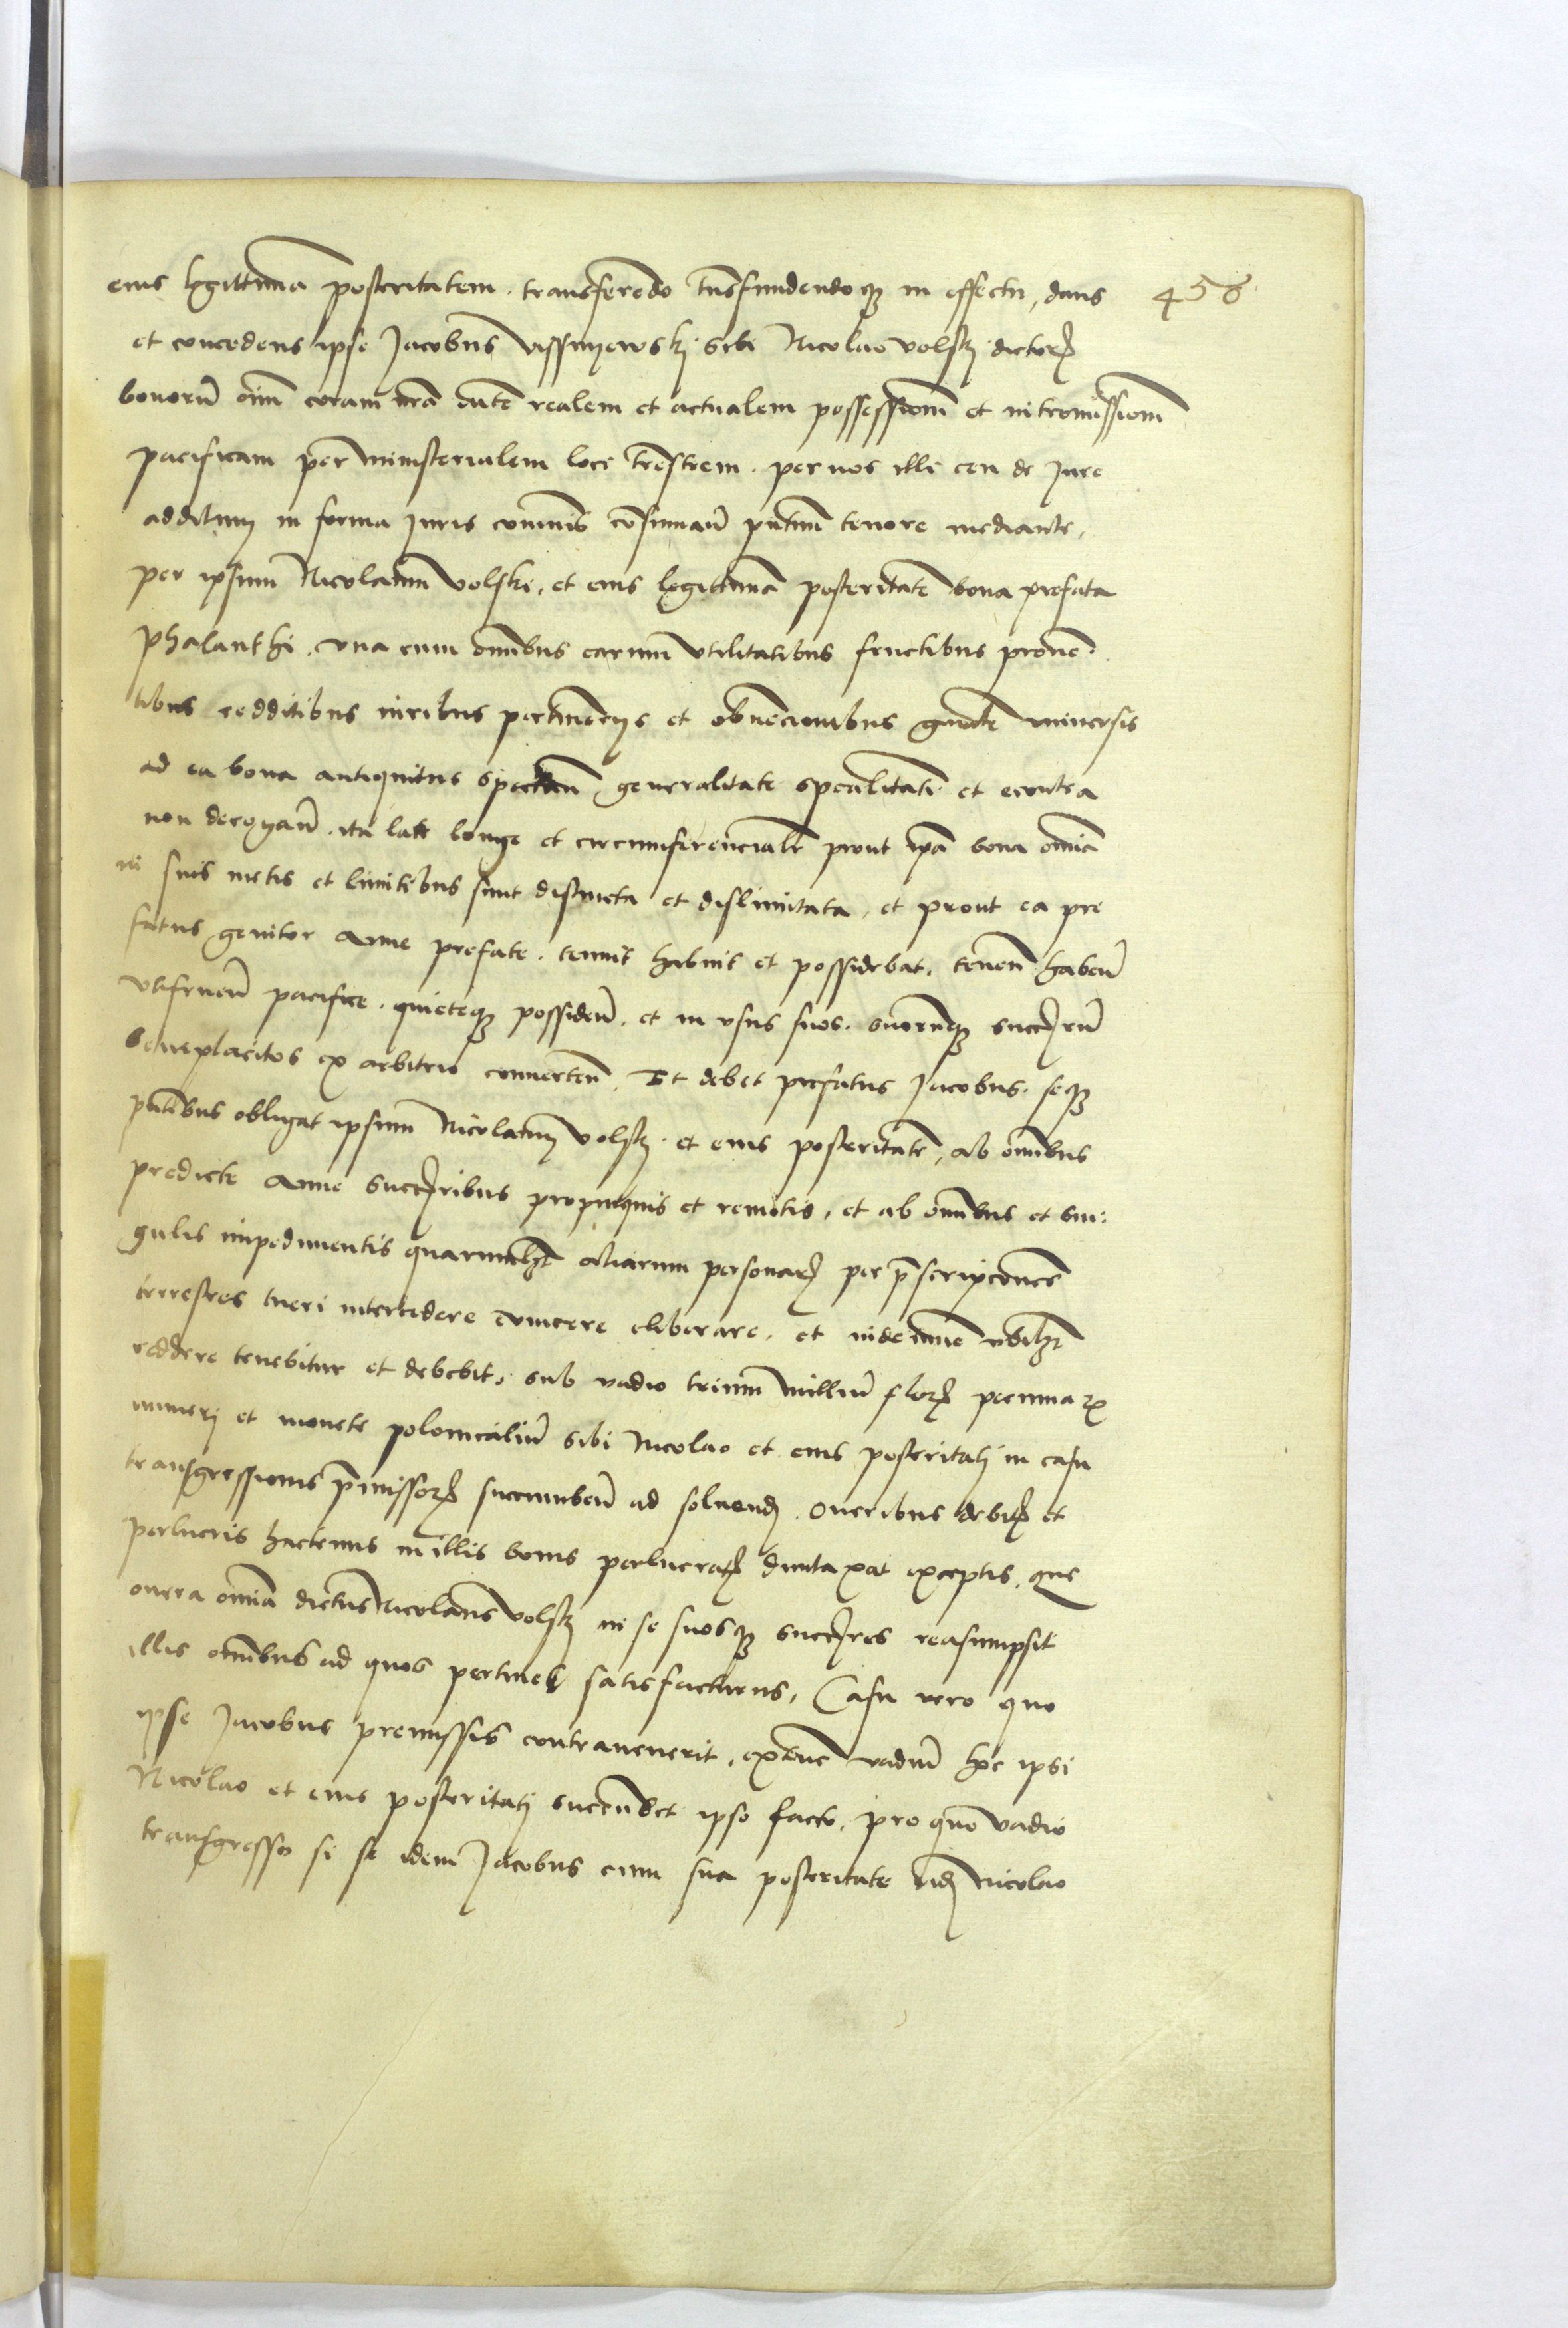 eius legittima posteritatem. transferendo tnsfundendoq3 in effectu, dans 456
et concedens ipse Jacobus Vissnyewskj sibi Nicolao Volskj dictorꝝ
bonorũ oĩm coram nra dãte realem et actualem possessionẽ et intromissionẽ
pacificam per ministerialem loci trestrem. per nos illi ceu de jure
additum in forma juris cõmunis consumañ pñtium tenore mediante,
per ipsum Nicolaum Volski, et eius legittimã posteritatẽ bona prefata
Phalanthi. vna cum omĩbus earum vtilitatibus fructibus prouen.
tibus redditibus iuribus pertinencijs et obuencionibus gñaliter vniuersis
ad ea bona antiquitus spectañ generalitate specialitati et econtra
non derogañ. ita late longe et circumferencialr prout ipa bona omĩa
in suis metis et limitibus sunt distincta et dislimitata, et prout ea pre
fatus genitor Anne prefate. tenuit habuit et possidebat. tenen habeñ
vtifrueñ pacifice. quieteq3 possideñ. et in vsus suos. suorumq3 succrũ
beneplacitos ex arbitrio conuerteñ. Et debet prefatus Jacobus. seq3
pñtibus obligat ipsum Nicolaum Volskj et eius posteritatẽ, ab omĩbus
predicte Anne succribus propinquis et remotis, et ab omĩbus et sin:
gulis impedimentis quarumlꝫt aliarum personarꝝ per p̃scripcones
terrestres tueri intercedere euincere eliberare. et indemne vbilꝫt
reddere tenebitur et debebit. sub vadio trium milliũ florꝝ pecuniarꝝ
numerj et monete polonicaliũ sibi Nicolao et eius posteritatj in casu
transgressionis p̃missorꝝ succumbeñ ad soluendꝫ. Oneribus debitꝭ et
perlucris hactenus in illis bonis perlucratꝭ duntaxat exceptis. que
onera omĩa dictus Nicolaus Volskj in se suosq3 succres reasumpsit
illis omĩbus ad quos pertinet satisfacturus, Casu vero quo
ipse Jacobus premissis contrauenerit. extunc vadiũ hoc ipsi
Nicolao et eius posteritatj succũbet ipso facto. pro quo vadio
transgresso si se idem Jacobus cum sua posteritate eidꝫ Nicolao